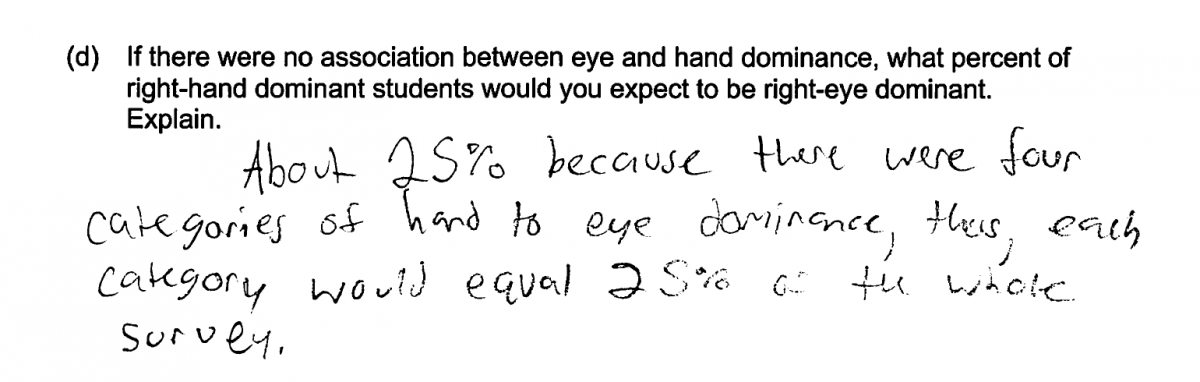 (d) If there were no association between eye and hand dominance, what percent of
right-hand dominant students would you expect to be right-eye dominant.
Explain.
About 25% because there were four
categories of hand to eye dominance, thus, each
category would equal 25% the whole
survey.